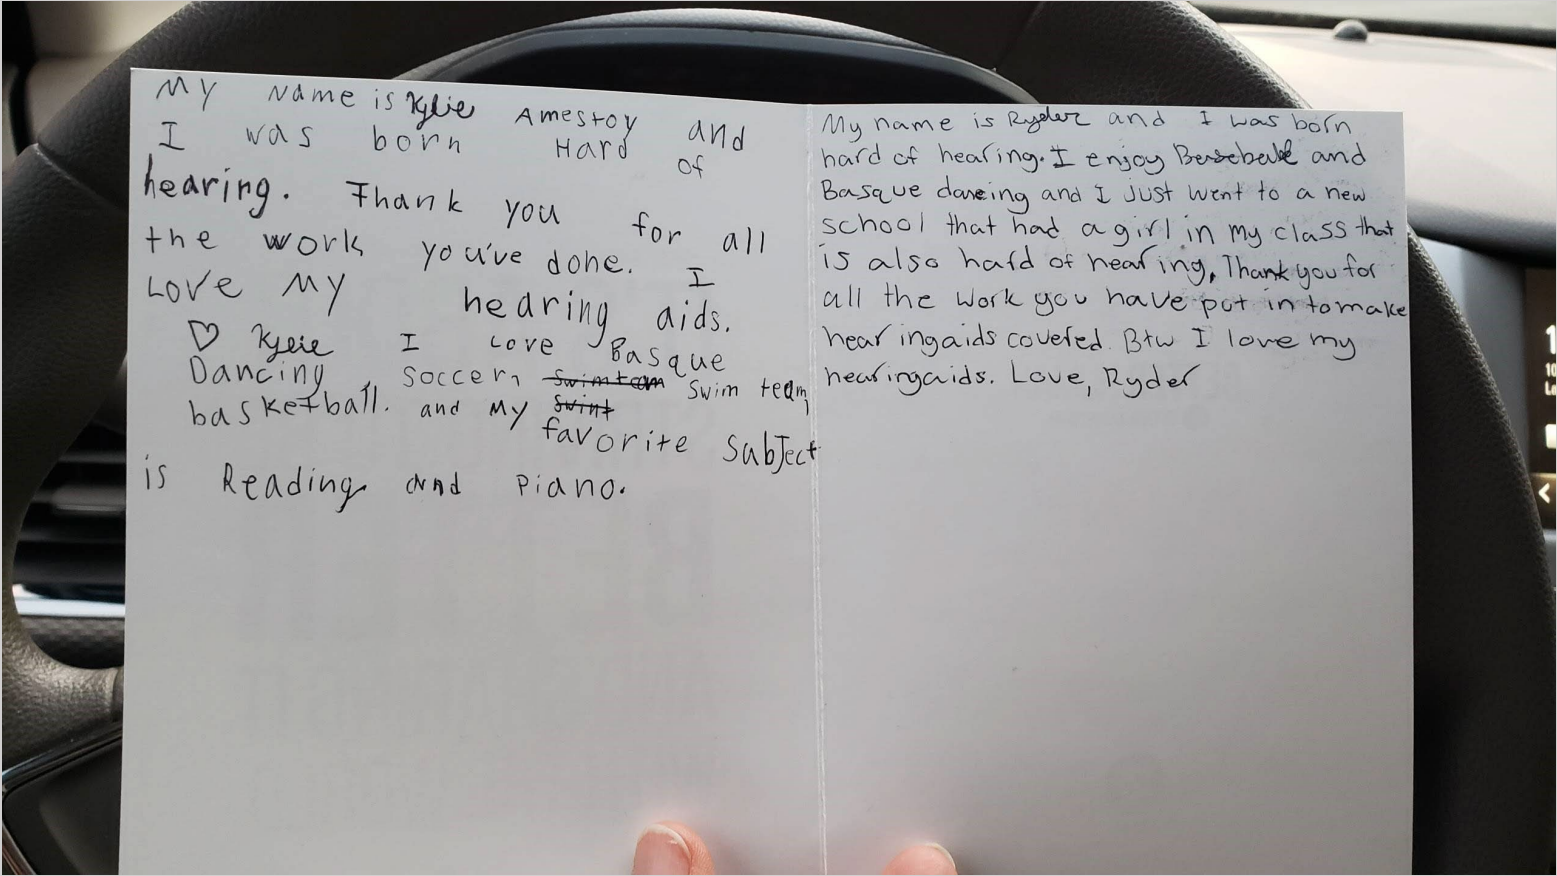 My Name is Kylie Amestoy and
I was born Hard of
hearing. Thank you for all
the work you've done. I
Love My hearing aids.
♡ Kylie I Love Basque
Dancing, soccer, ~~swim team~~ Swim team,
basketball. and My ~~Swint~~
favorite Subject
is Reading and Piano.
My name is Ryder and I was born
hard of hearing. I enjoy Baseball and
Basque dancing and I Just went to a new
school that had a girl in my class that
is also hard of hearing, Thank you for
all the work you have put in to make
hearingaids covered. Btw I love my
hearingaids. Love, Ryder